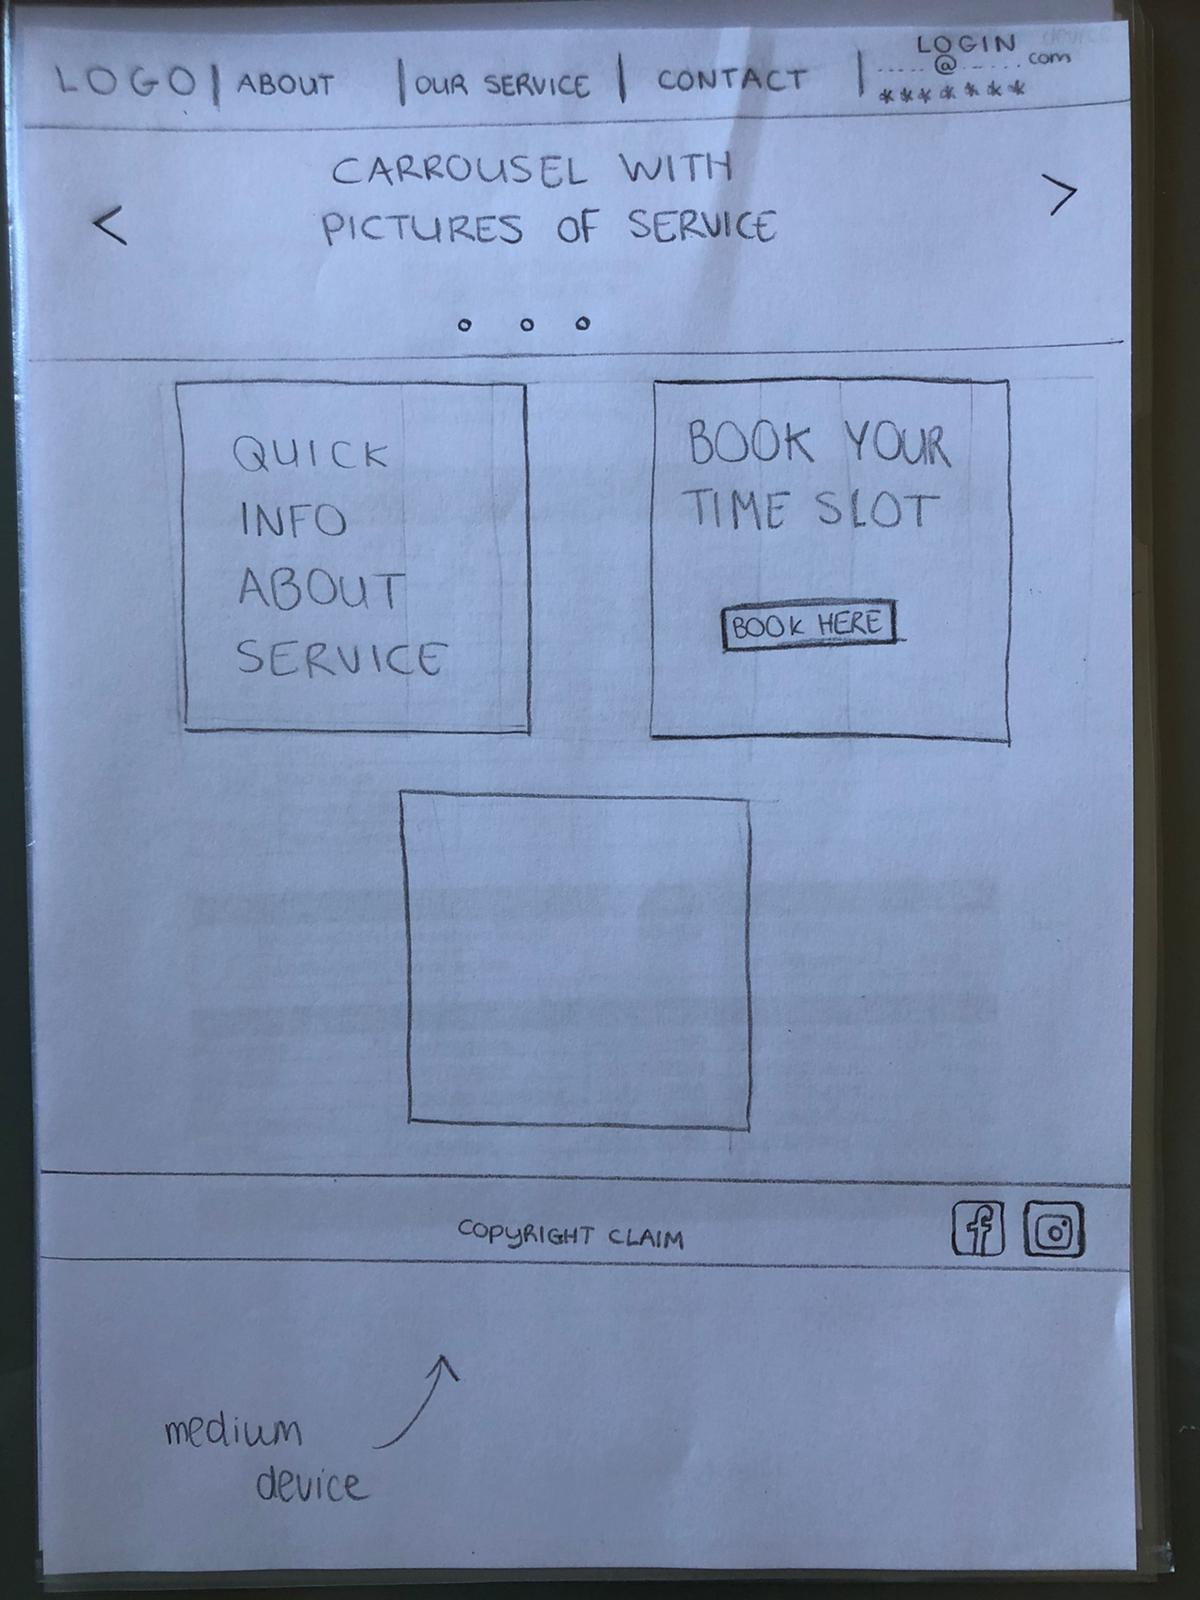 LOGO | ABOUT | OUR SERVICE | CONTACT | LOGIN
.....@...... com
*******
CARROUSEL WITH
PICTURES OF SERVICE
< >
QUICK
INFO
ABOUT
SERVICE
BOOK YOUR
TIME SLOT
BOOK HERE
COPYRIGHT CLAIM
f
medium
device